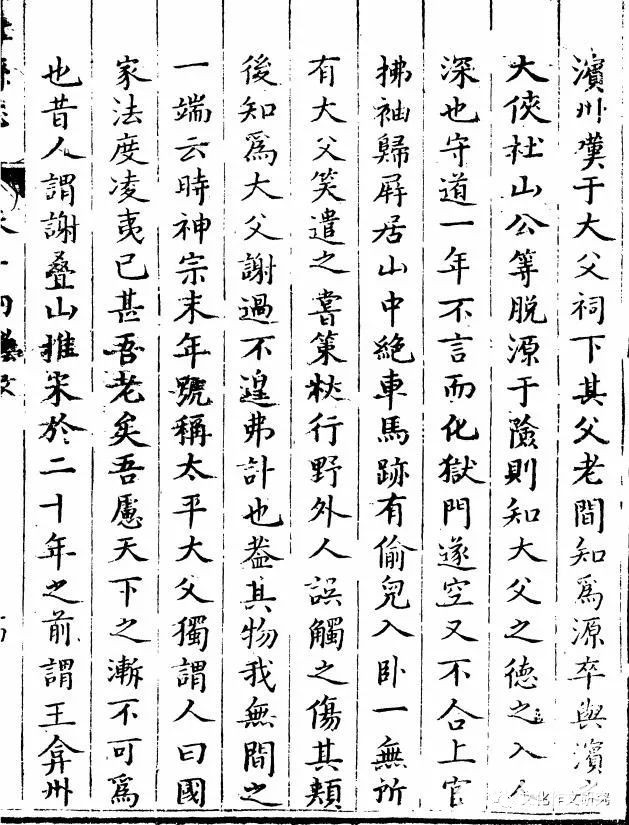 濱州嘆于大父祠下其父老間知爲源卒與濱之
大俠社山公等脱源于險則知大父之德之入人
深也守道一年不言而化獄門遂空又不合上官
拂袖歸屏居山中絶車馬跡有偷兒入卧一無所
有大父笑遣之嘗策杖行野外人誤觸之傷其頰
後知爲大父謝過不遑弗計也葢其物我無間之
一端云時神宗末年號稱太平大父獨謂人曰國
家法度凌夷已甚吾老矣吾慮天下之漸不可爲
也昔人謂謝疊山推宋於二十年之前謂王弇州